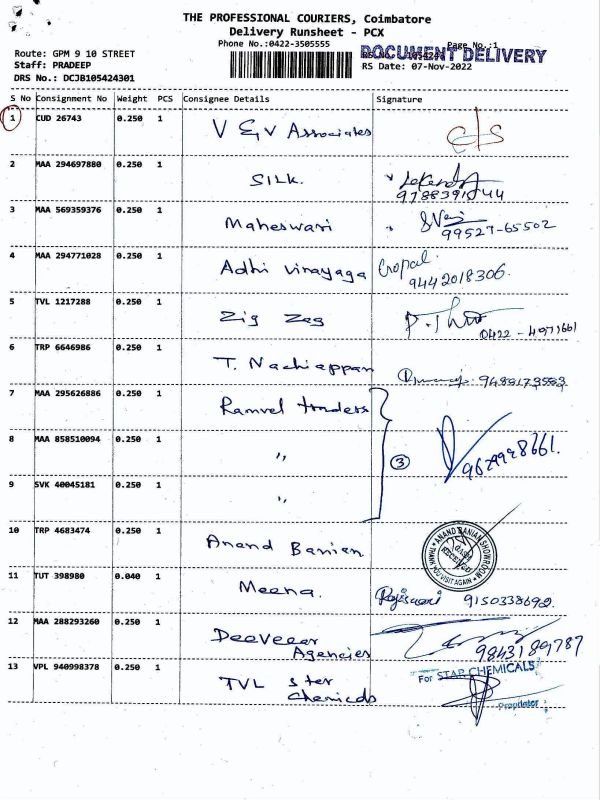 THE PROFESSIONAL COURIERS, Coimbatore
Delivery Runsheet - PCX
Phone No.:0422-3505555
Page No.:1
DOCUMENT DELIVERY
Route: GPM 9 10 STREET
Staff: PRADEEP
RS Date: 07-Nov-2022
DRS No.: DCJB105424301
S No Consignment No Weight PCS Consignee Details Signature
1 CUD 26743 0.250 1 V & V Associates
2 MAA 294697880 0.250 1 SILK.
3 MAA 569359376 0.250 1 Maheswari 99527-65502
4 MAA 294771028 0.250 1 Adhi vinayaga Gopal. 9442018306.
5 TVL 1217288 0.250 1 Zig Zag 0422-4971661
6 TRP 6646986 0.250 1 T. Nachiappan 9488173583
7 MAA 295626886 0.250 1 Ramvel traders
8 MAA 858510094 0.250 1 ,, 3 9629948661.
9 SVK 40045181 0.250 1 ,,
10 TRP 4683474 0.250 1 Anand Banian ANAND BANIAN SHOWROOM THANK YOU VISIT AGAIN CASH RECEIVED
11 TUT 398980 0.040 1 Meena. 9150338692.
12 MAA 288293260 0.250 1 Deeveear
Agencies 9843189787
13 VPL 940998378 0.250 1 TVL Ster
Chemicals
For STAR CHEMICALS
Proprietor